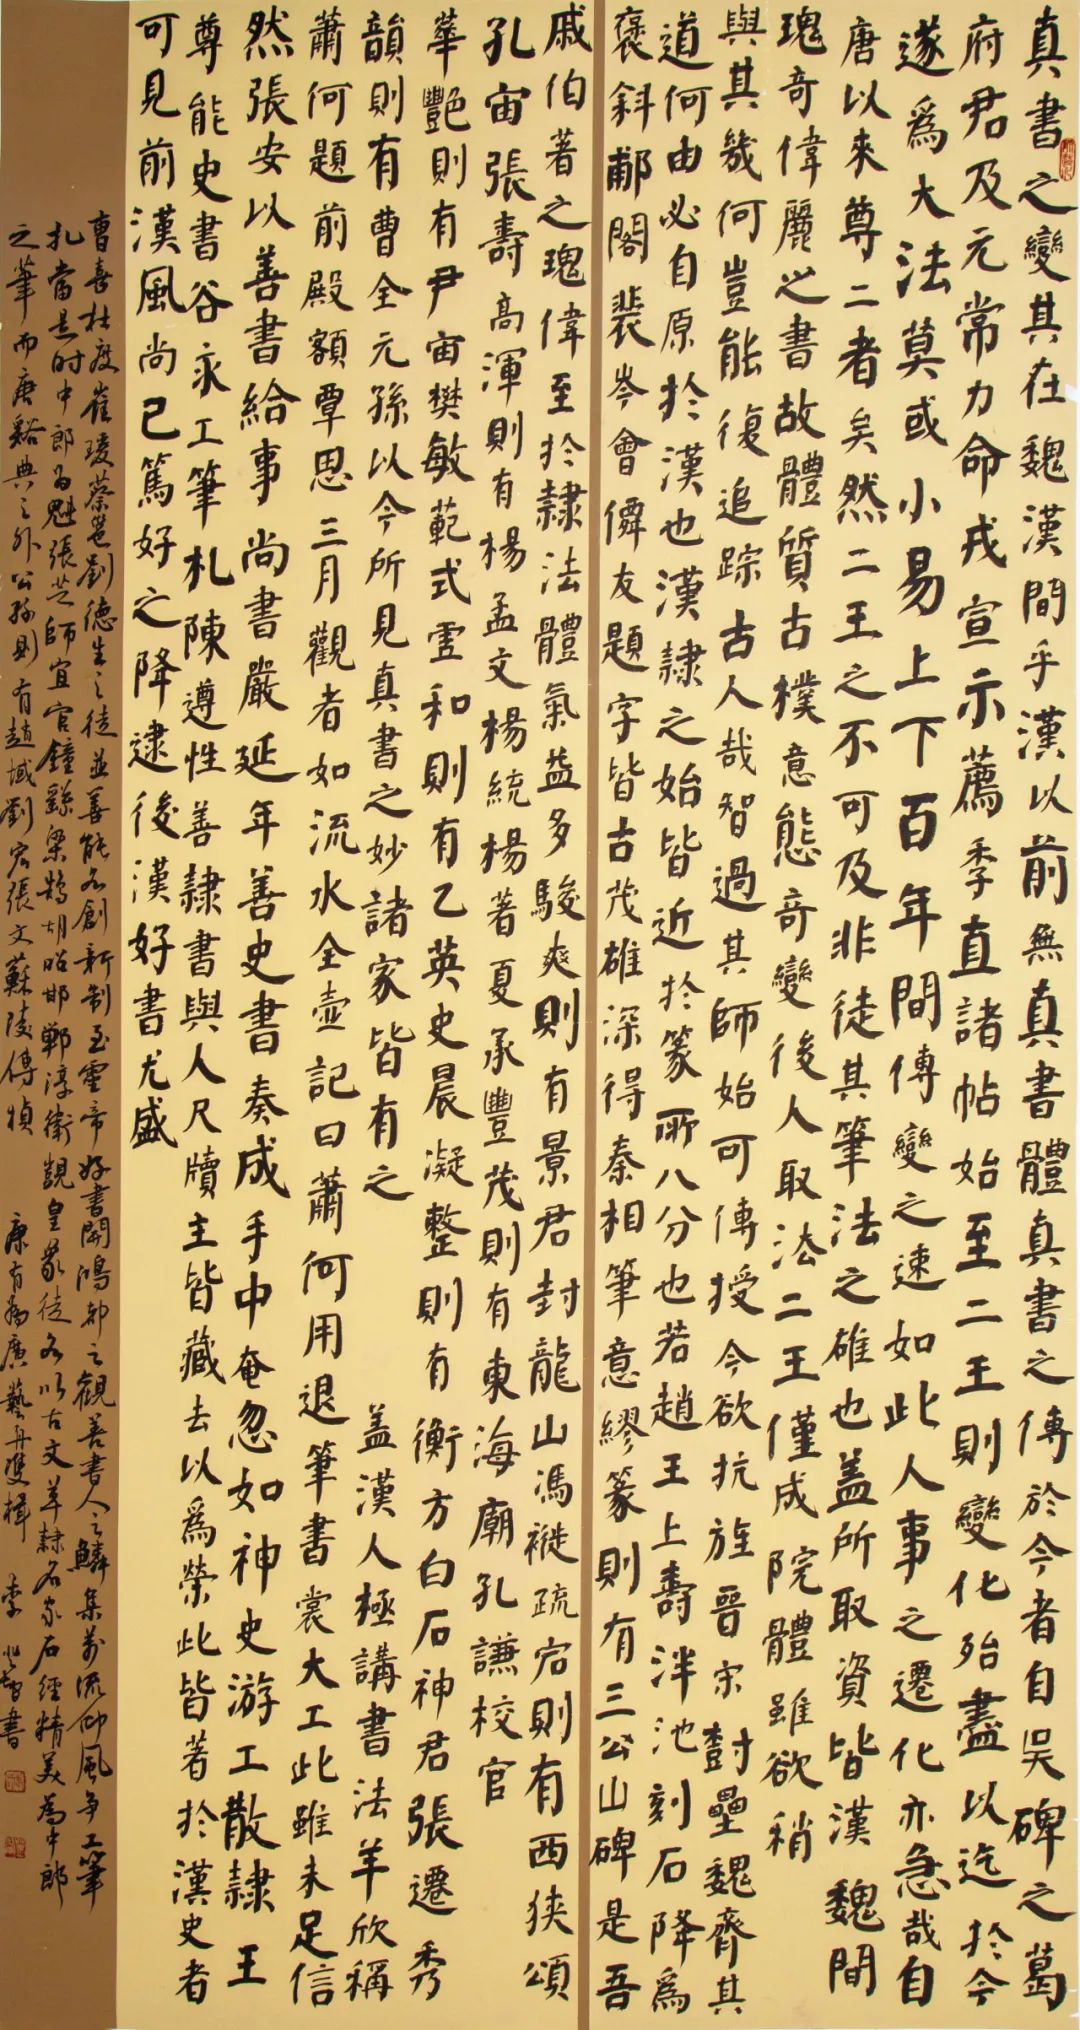 真書之變其在魏漢間乎漢以前無真書體真書之傳於今者自吳碑之葛
府君及元常力命戎宣示薦季直諸帖始至二王則變化殆盡以迄於今
遂為大法莫或小易上下百年間傳變之速如此人事之遷化亦急哉自
唐以來尊二者矣然二王之不可及非徒其筆法之雄也蓋所取資皆漢魏間
瑰奇偉麗之書故體質古樸意態奇變後人取法二王僅成院體雖欲稍
與其幾何豈能復追踪古人哉智過其師始可傳授今欲抗旌晉宋對壘魏齊其
道何由必自原於漢也漢隸之始皆近於篆所八分也若趙王上壽泮池刻石降為
褒斜鄐閣裴岑會僚友題字皆古茂雄深得秦相筆意繆篆則有三公山碑是吾
戚伯著之瑰偉至於隸法體氣益多駿爽則有景君封龍山馮褷疏宕則有西狹頌
孔宙張壽高渾則有楊孟文楊統楊著夏承豐茂則有東海廟孔謙校官
華艷則有尹宙樊敏範式虛和則有乙英史晨凝整則有衡方白石神君張遷秀
韻則有曹全元孫以今所見真書之妙諸家皆有之蓋漢人極講書法羊欣稱
蕭何題前殿額覃思三月觀者如流水全壺記曰蕭何用退筆書裳大工此雖未足信
然張安以善書給事尚書嚴延年善史書奏成手中奄忽如神史游工散隸王
尊能史書谷永工筆札陳遵性善隸書與人尺牘主皆藏去以為榮此皆著於漢史者
可見前漢風尚已篤好之降逮後漢好書尤盛
曹喜杜度崔瑗蔡邕劉德生之徒並善能各創新制至靈帝好書開鴻都之觀善書人之鱗集萬流仰風爭工筆
札當是時中郎為魁張芝師宜官鐘繇梁鵠胡昭邯鄲淳衛覬皇象徒各以古文草隸名家石經精美為中郎
之筆而唐谿典之外公孫則有趙域劉宏張文蘇陵傅楨 康有為廣藝舟雙楫 李 書